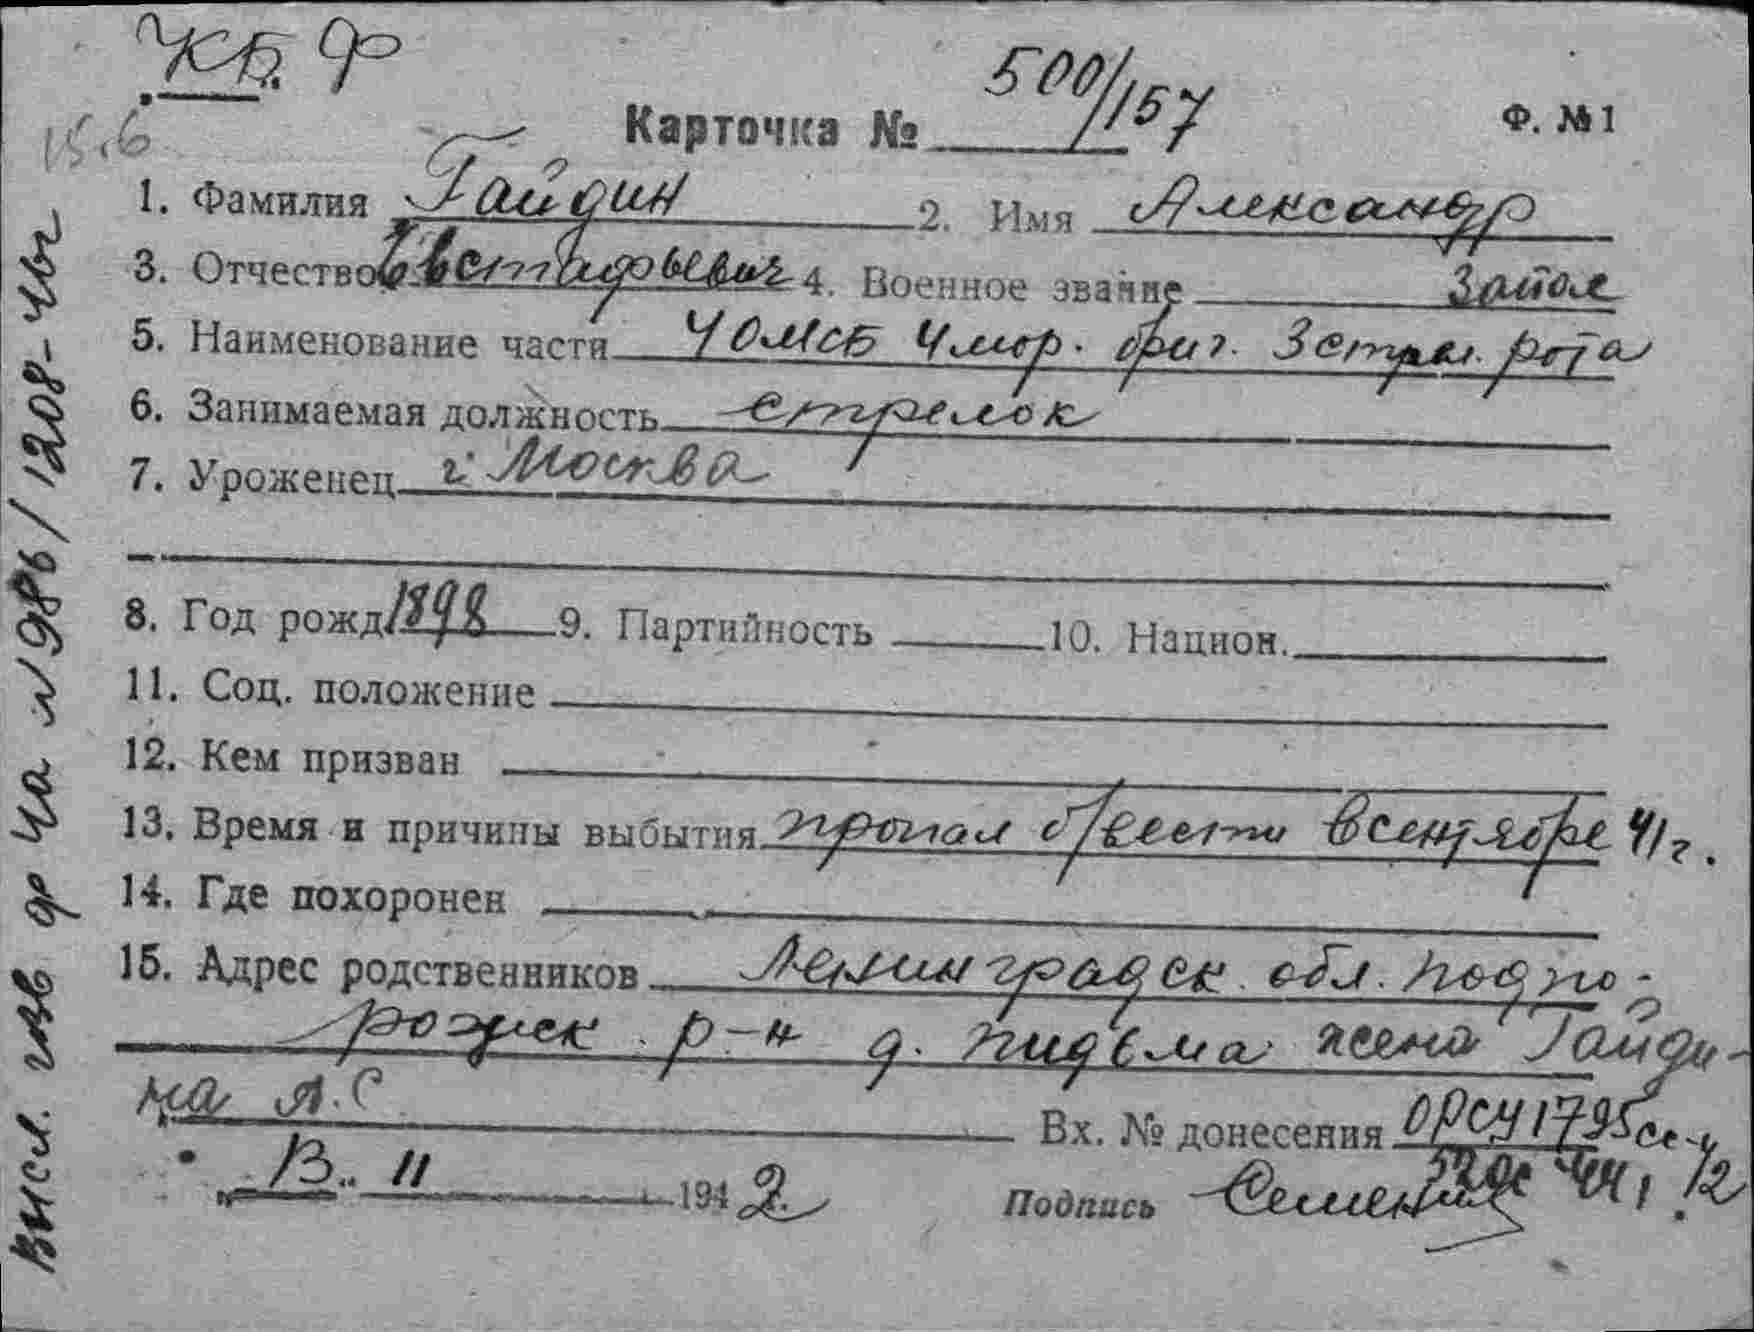 КБФ
Карточка № 500/157
Ф. №1
15.6
1. Фамилия Гайдин 2. Имя Александр
3. Отчество Евстафьевич 4. Военное звание Запас
5. Наименование части 4 ОМСБ 4 мор. бриг. 3 стрел. рота
6. Занимаемая должность стрелок
7. Уроженец г. Москва
8. Год рожд. 1898 9. Партийность 10. Национ.
11. Соц. положение
12. Кем призван
13. Время и причины выбытия пропал б/вести в сентябре 41 г.
14. Где похоронен
15. Адрес родственников Ленинградск. обл. Подпо-
рожск. р-н д. Пидьма жена Гайди-
на А.С.
Вх. № донесения ОРСУ 1795сс
13. 11 1942
Подпись
на №986/1208-